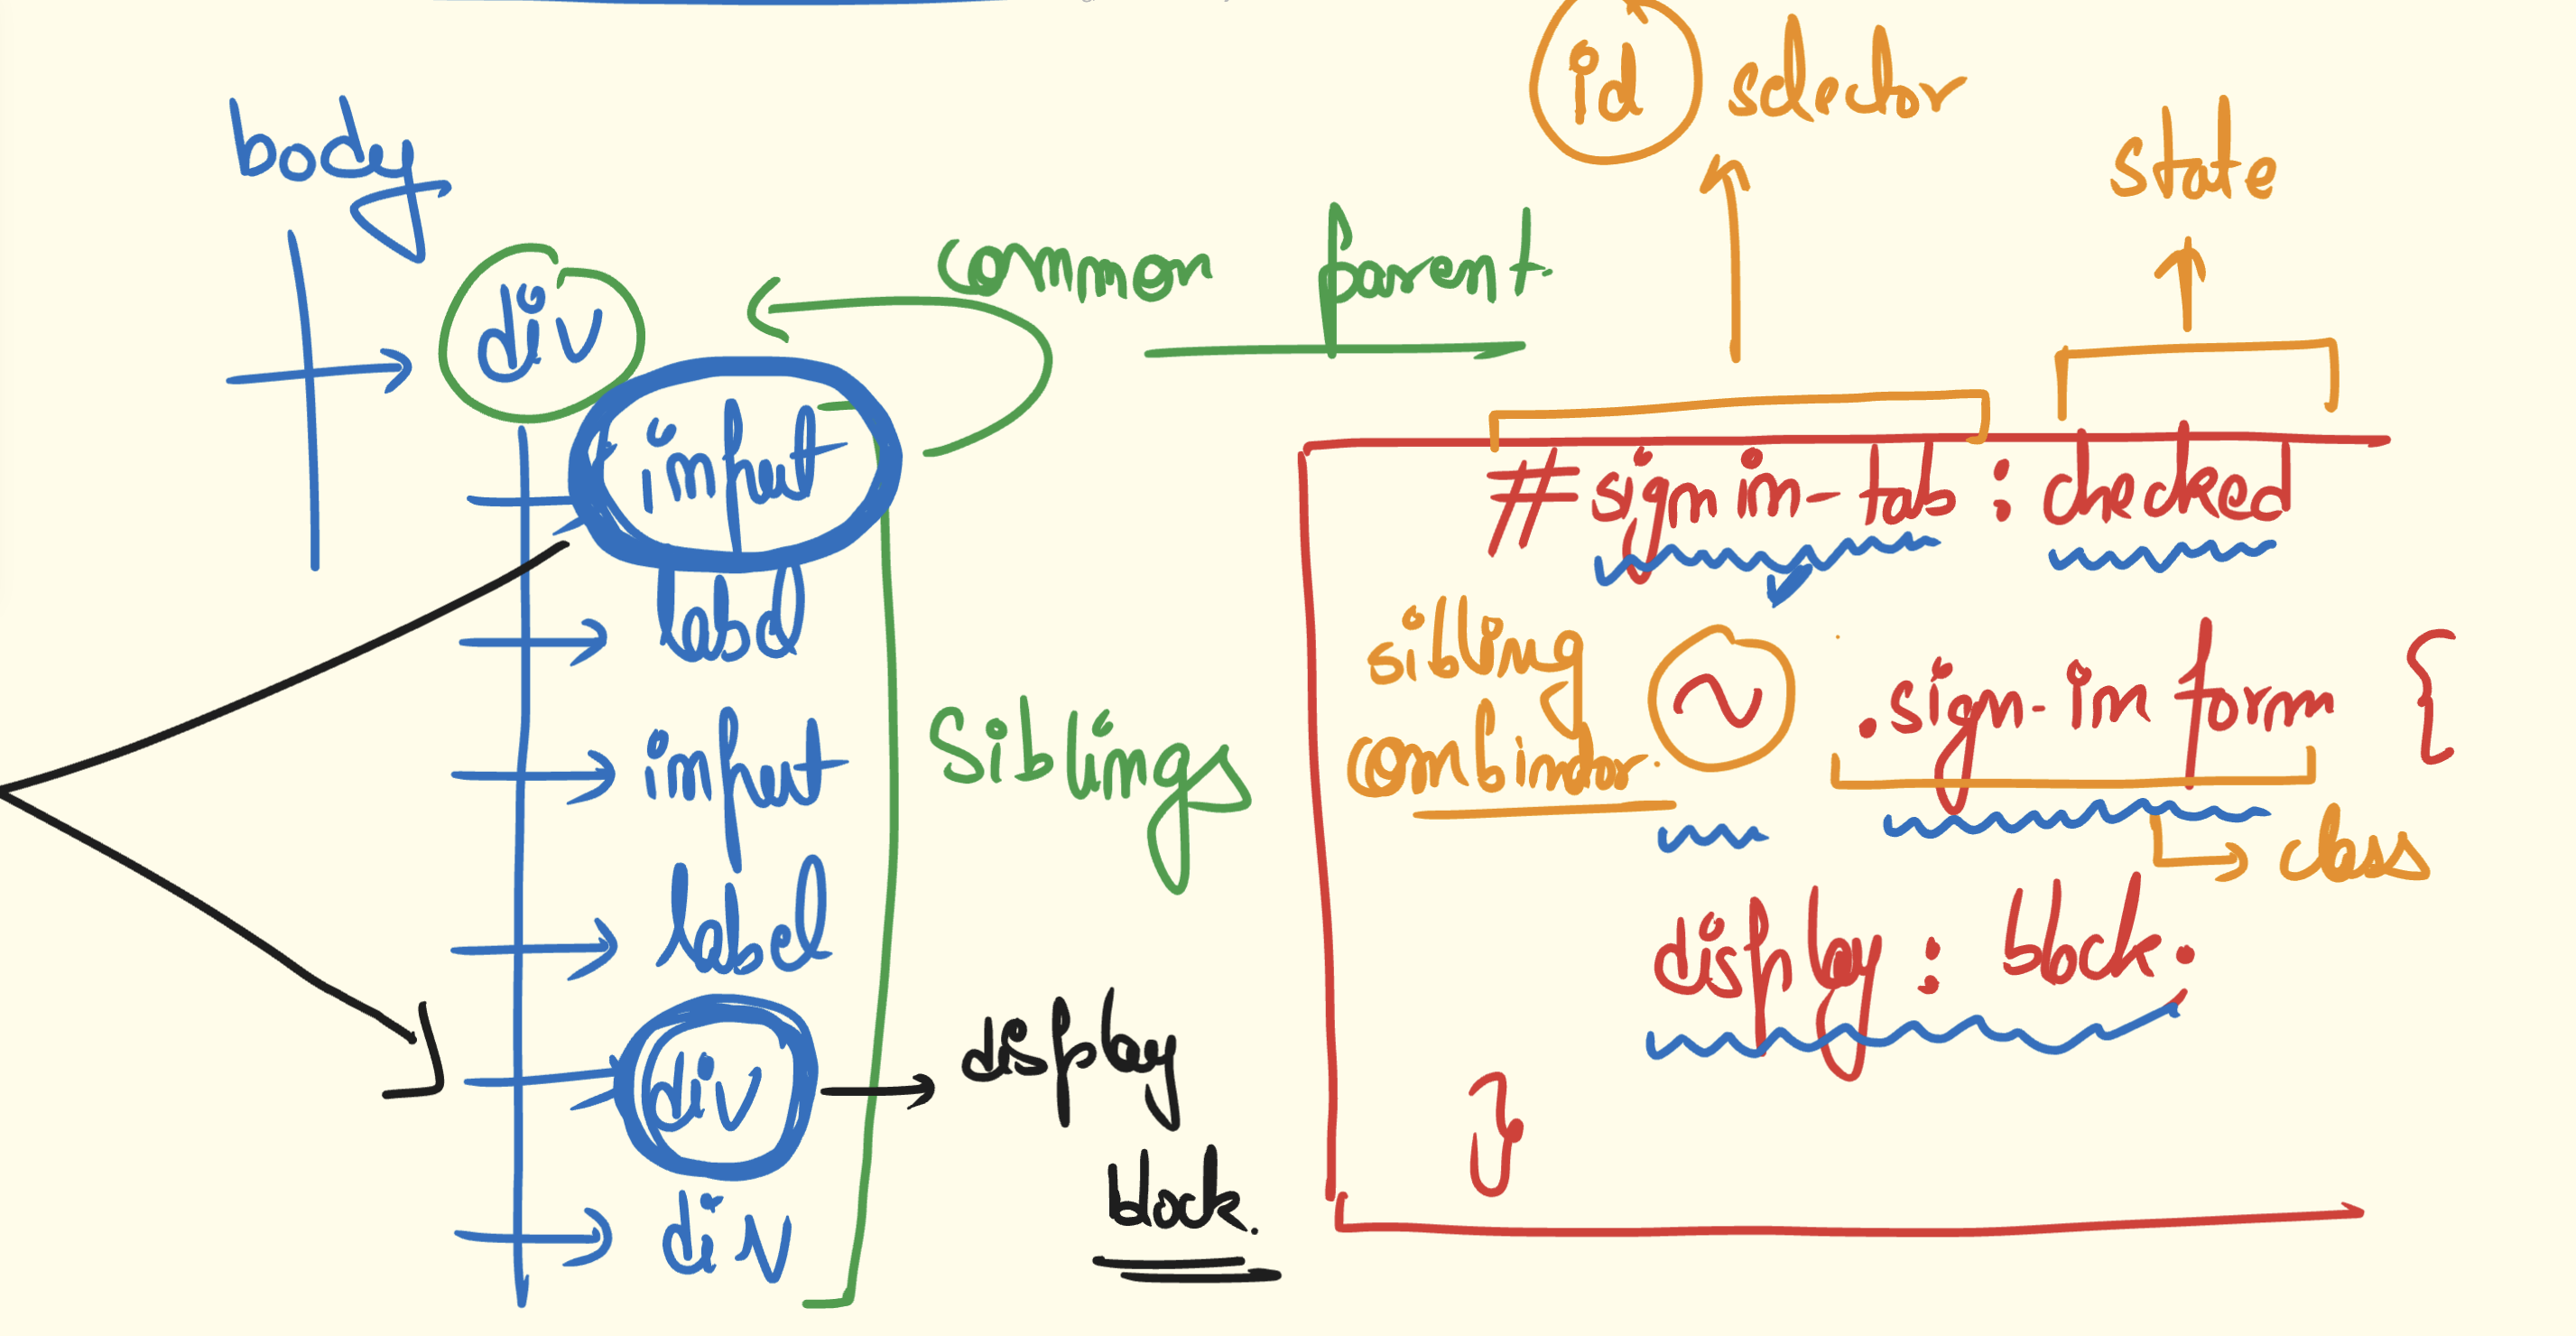 body
div
common parent
input
label
input
label
div
div
Siblings
display
block.
id selector
state
#signin-tab : checked
sibling
combinator
~ .sign-in form {
class
display : block;
}